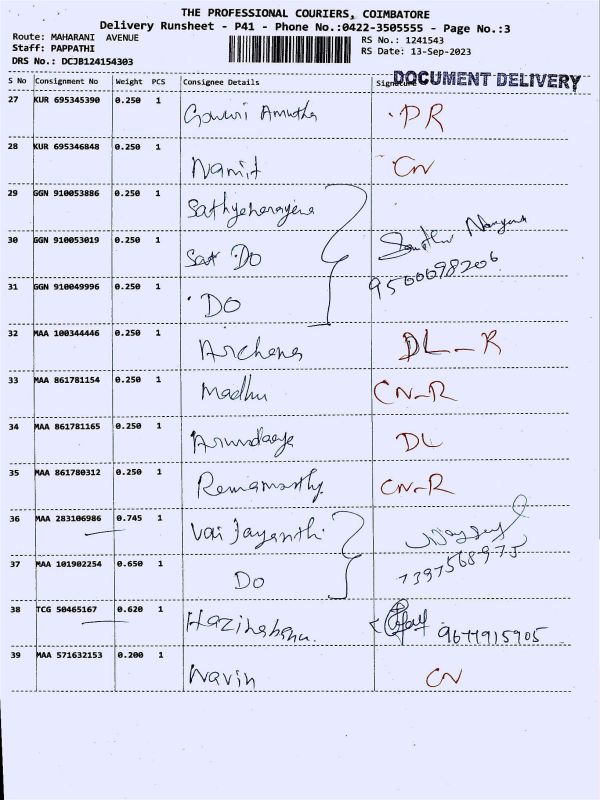 THE PROFESSIONAL COURIERS, COIMBATORE
Delivery Runsheet - P41 - Phone No.:0422-3505555 - Page No.:3
Route: MAHARANI AVENUE RS No.: 1241543
Staff: PAPPATHI RS Date: 13-Sep-2023
DRS No.: DCJB124154303
DOCUMENT DELIVERY
S No Consignment No Weight PCS Consignee Details Signature
27 KUR 695345390 0.250 1 Gowri Amutha PR
28 KUR 695346848 0.250 1 Namit CN
29 GGN 910053886 0.250 1 Sathyenarayena
30 GGN 910053019 0.250 1 Sat Do
9500098206
31 GGN 910049996 0.250 1 Do
32 MAA 100344446 0.250 1 Archena DL-R
33 MAA 861781154 0.250 1 Madhu CN-R
34 MAA 861781165 0.250 1 DL
35 MAA 861780312 0.250 1 Remamorthy CN-R
36 MAA 283106986 0.745 1 Vai Jayanthi
37 MAA 101902254 0.650 1 Do 7397568975
38 TCG 50465167 0.620 1 Hazinabanu. 9677915905
39 MAA 571632153 0.200 1 Navin CN